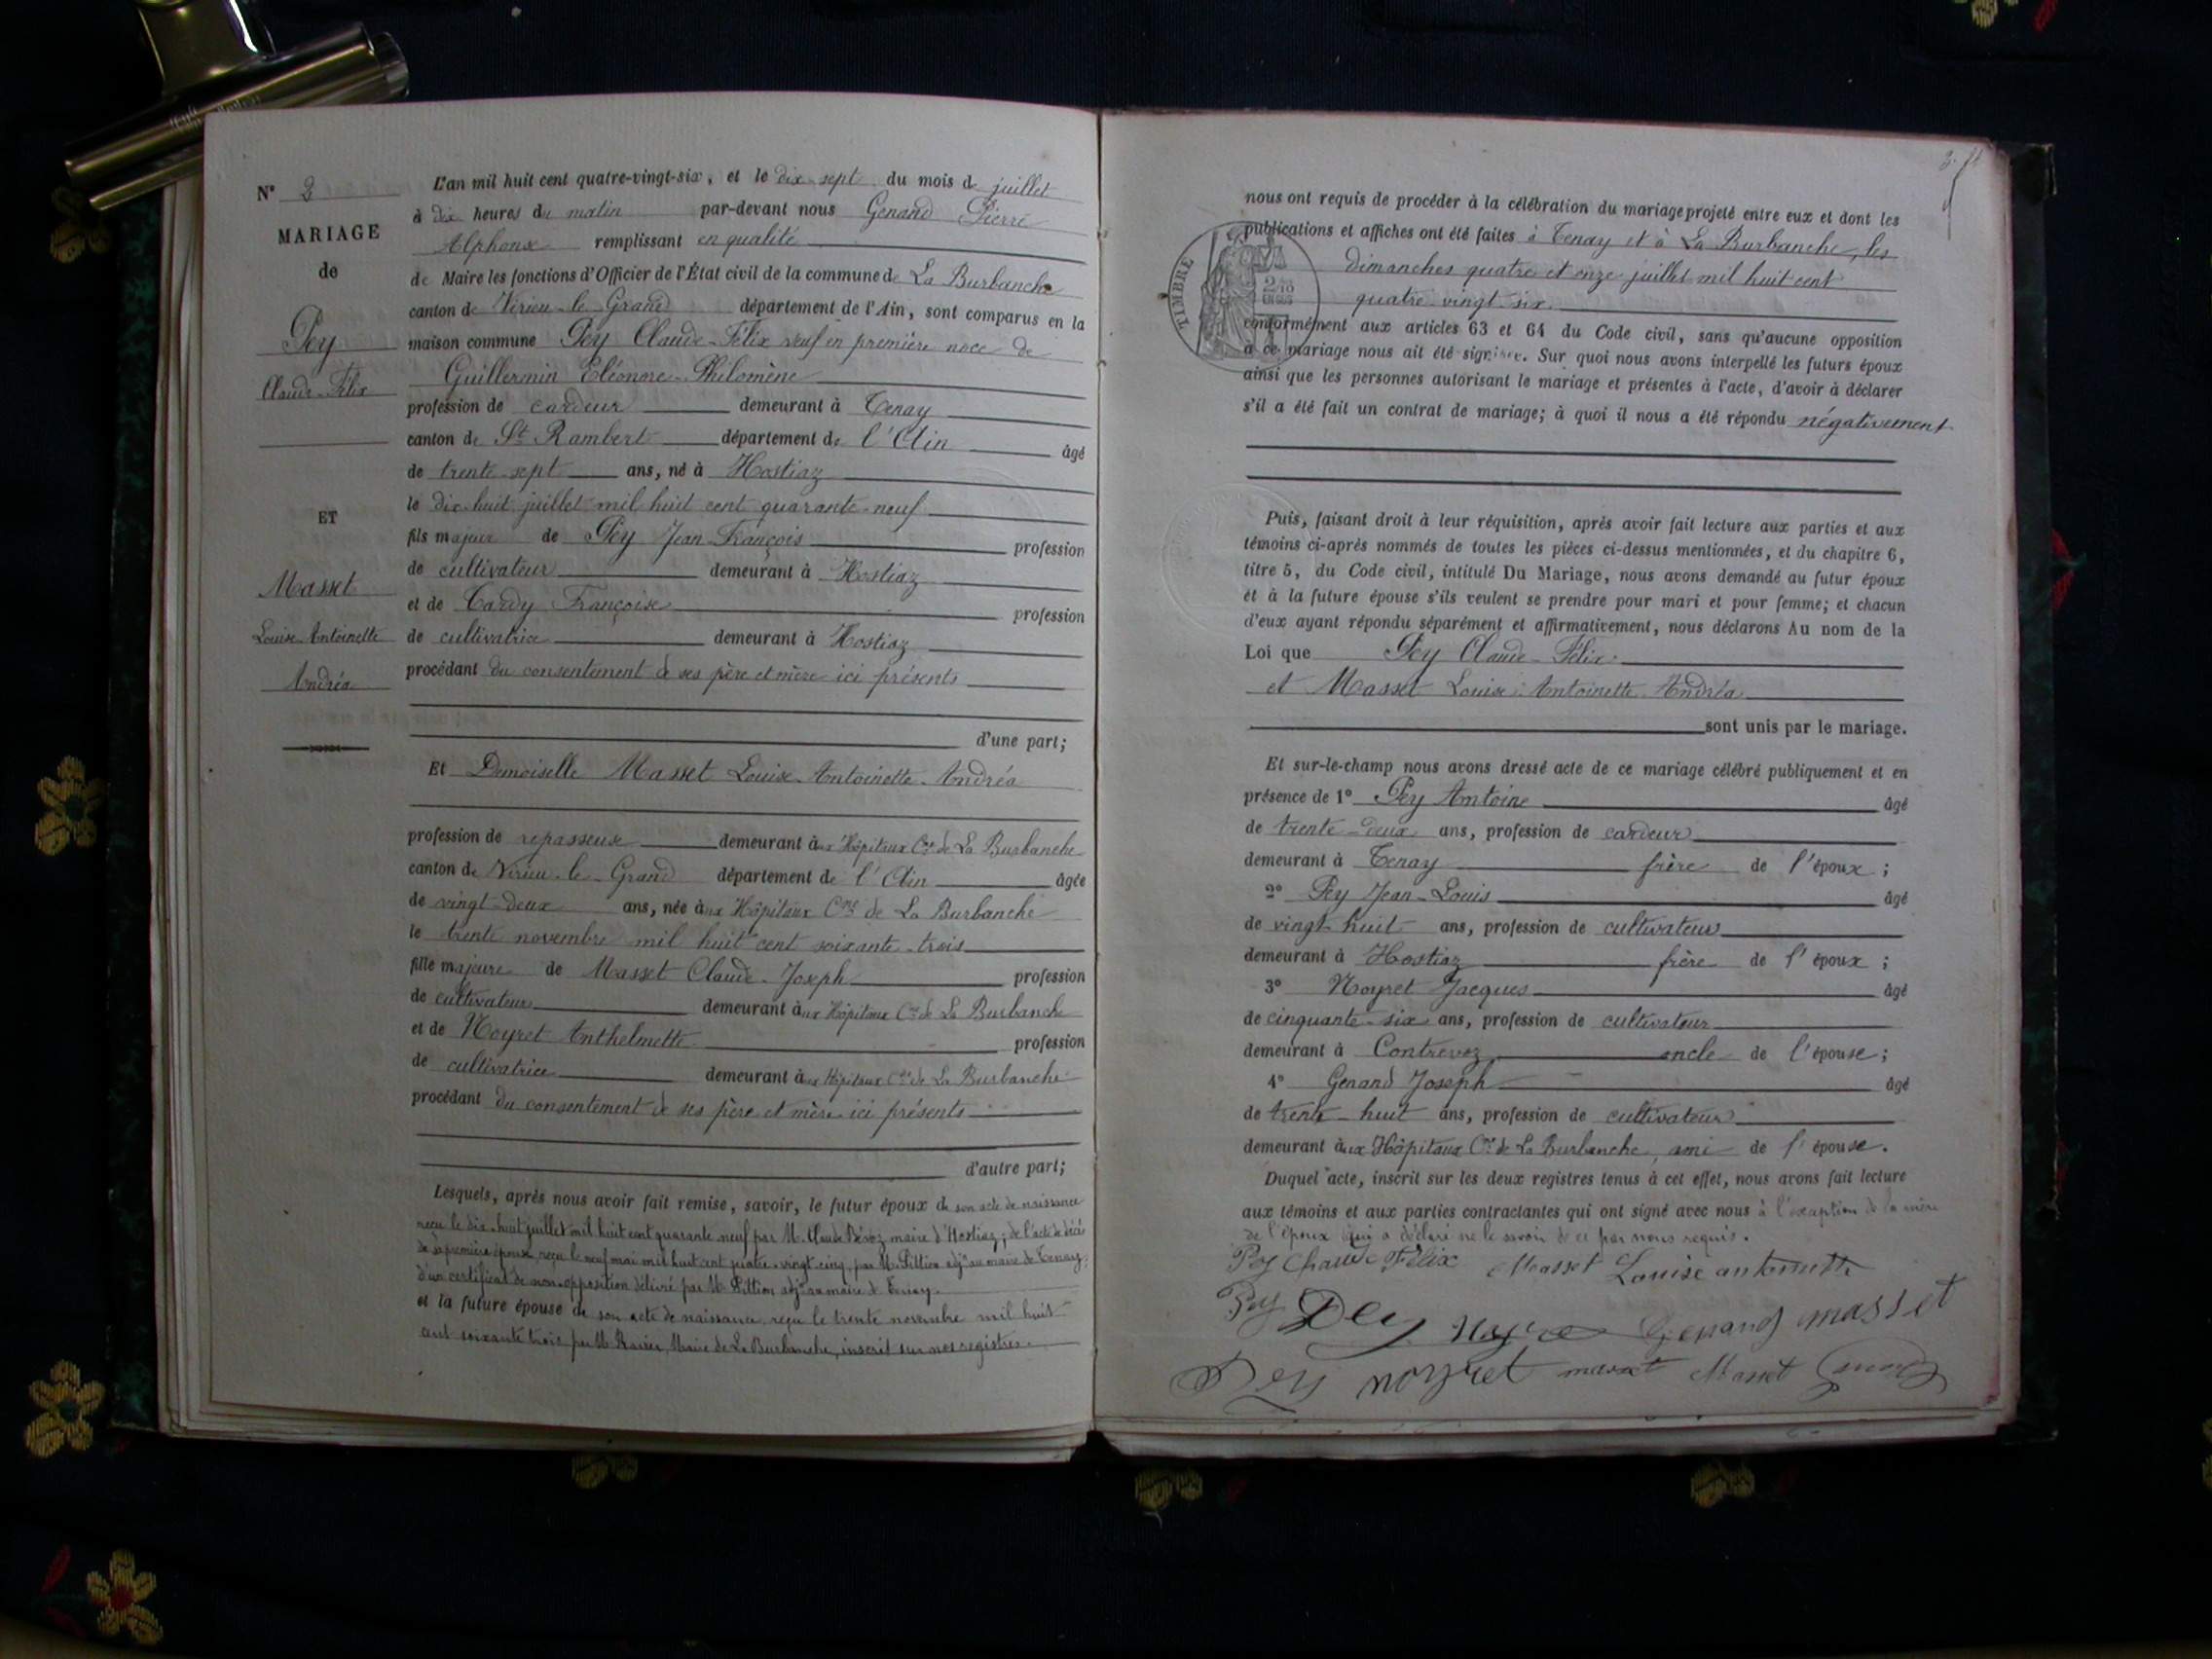 N° 2
MARIAGE
de
Pey
Claude-Félix
ET
Masset
Louise Antoinette
Andréa
L'an mil huit cent quatre-vingt-six, et le dix-sept du mois de juillet
à dix heures du matin par-devant nous Genand Pierre
Alphonse remplissant en qualité
de Maire les fonctions d'Officier de l'État civil de la commune de La Burbanche
canton de Virieu-le-Grand département de l'Ain, sont comparus en la
maison commune Pey Claude-Félix veuf en première noce de
Guillermin Eléonore-Philomène
profession de cardeur demeurant à Tenay
canton de St Rambert département de l'Ain âgé
de trente-sept ans, né à Hostiaz
le dix-huit juillet mil huit cent quarante-neuf
fils majeur de Pey Jean-François profession
de cultivateur demeurant à Hostiaz
et de Tardy Françoise profession
de cultivatrice demeurant à Hostiaz
procédant du consentement de ses père et mère ici présents
d'une part;
Et Demoiselle Masset Louise-Antoinette-Andréa
profession de repasseuse demeurant aux Hôpitaux Cne de La Burbanche
canton de Virieu-le-Grand département de l'Ain âgée
de vingt-deux ans, née aux Hôpitaux Cne de La Burbanche
le trente novembre mil huit cent soixante-trois
fille majeure de Masset Claude-Joseph profession
de cultivateur demeurant aux Hôpitaux Cne de La Burbanche
et de Noyret Anthelmette profession
de cultivatrice demeurant aux Hôpitaux Cne de La Burbanche
procédant du consentement de ses père et mère ici présents
d'autre part;
Lesquels, après nous avoir fait remise, savoir, le futur époux de son acte de naissance
reçu le dix-huit juillet mil huit cent quarante neuf par M. Claude maire d'Hostiaz; de l'acte de décès
de sa première épouse, reçu le neuf mai mil huit cent quatre-vingt-cinq par M. Pittion adjt au maire de Tenay;
d'un certificat de non-opposition délivré par M. Pittion adjt au maire de Tenay.
et la future épouse de son acte de naissance reçu le trente novembre mil huit
cent soixante trois par M. Maire de La Burbanche, inscrit sur nos registres.
nous ont requis de procéder à la célébration du mariage projeté entre eux et dont les
publications et affiches ont été faites à Tenay et à La Burbanche, les
dimanches quatre et onze juillet mil huit cent
quatre-vingt-six.
TIMBRE
conformément aux articles 63 et 64 du Code civil, sans qu'aucune opposition
à ce mariage nous ait été signifiée. Sur quoi nous avons interpellé les futurs époux
ainsi que les personnes autorisant le mariage et présentes à l'acte, d'avoir à déclarer
s'il a été fait un contrat de mariage; à quoi il nous a été répondu négativement
Puis, faisant droit à leur réquisition, après avoir fait lecture aux parties et aux
témoins ci-après nommés de toutes les pièces ci-dessus mentionnées, et du chapitre 6,
titre 5, du Code civil, intitulé Du Mariage, nous avons demandé au futur époux
et à la future épouse s'ils veulent se prendre pour mari et pour femme; et chacun
d'eux ayant répondu séparément et affirmativement, nous déclarons Au nom de la
Loi que Pey Claude-Félix
et Masset Louise-Antoinette-Andréa
sont unis par le mariage.
Et sur-le-champ nous avons dressé acte de ce mariage célébré publiquement et en
présence de 1° Pey Antoine âgé
de trente-deux ans, profession de cardeur
demeurant à Tenay frère de l'époux;
2° Pey Jean-Louis âgé
de vingt-huit ans, profession de cultivateur
demeurant à Hostiaz frère de l'époux;
3° Noyret Jacques âgé
de cinquante-six ans, profession de cultivateur
demeurant à Contrevoz oncle de l'épouse;
4° Genand Joseph âgé
de trente-huit ans, profession de cultivateur
demeurant aux Hôpitaux Cne de La Burbanche, ami de l'épouse.
Duquel acte, inscrit sur les deux registres tenus à cet effet, nous avons fait lecture
aux témoins et aux parties contractantes qui ont signé avec nous à l'exception de la mère
de l'époux qui a déclaré ne le savoir de ce par nous requis.
Pey Claude Félix Masset Louise antoinette
Pey Pey Genand masset
Pey noyret masset Masset Genand